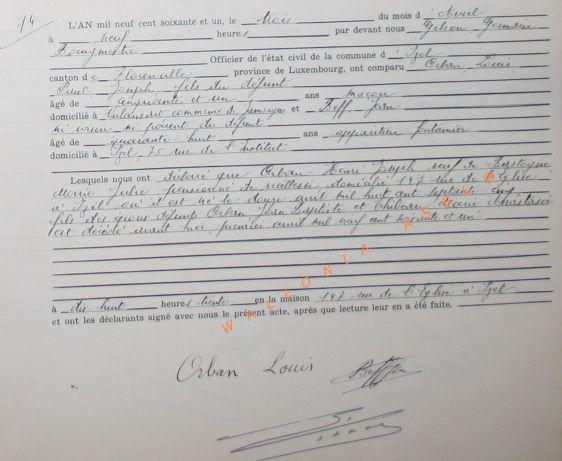 14
L'AN mil neuf cent soixante et un, le trois du mois d'Avril
à neuf heures par devant nous Gelson Germain
Bourgmestre Officier de l'état civil de la commune d'Izel
canton de Florenville province de Luxembourg, ont comparu Orban Louis
Paul Joseph, fils du défunt
âgé de cinquante et un ans maçon
domicilié à commune de Jamoigne et Jean
ni voisin ni parent du défunt
âgé de quarante huit ans
domicilié à Izel, 75 rue de l'Institut
Lesquels nous ont déclaré que Orban Henri Joseph veuf de
Marie Julie pensionné de domicilié 147 rue de l'Eglise
à Izel où il est né le douze avril mil huit cent septante cinq
fils des époux défunts Orban Jean Baptiste et Marie
est décédé avant hier premier avril mil neuf cent soixante et un
à dix huit heures trente en la maison 147 rue de l'Eglise à Izel
et ont les déclarants signé avec nous le présent acte, après que lecture leur en a été faite.
WALLONIA ASBL
Orban Louis